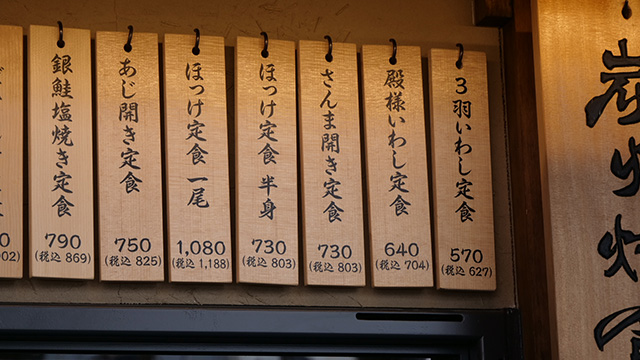 3羽いわし定食
570
(税込 627)
殿様いわし定食
640
(税込 704)
さんま開き定食
730
(税込 803)
ほっけ定食 半身
730
(税込 803)
ほっけ定食 一尾
1,080
(税込 1,188)
あじ開き定食
750
(税込 825)
銀鮭塩焼き定食
790
(税込 869)